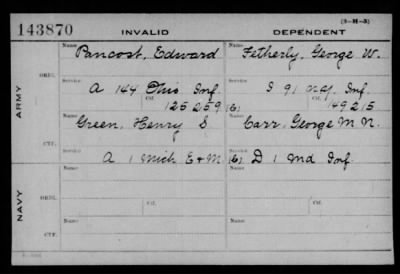 (3-H-5)
143870 INVALID DEPENDENT
Name Name
Pancost, Edward Fetherly, George W.
ORIG. Service: Service:
A 144 Ohio Inf. I 91 N.Y. Inf.
Ctf. 125259 (6) Ctf. 149215
ARMY
Name Name
Green, Henry S. Carr, George M N.
CTF. Service: Service:
A 1 Mich E+M (6) D 1 Md Inf.
Name Name
NAVY ORIG.
Ctf. Ctf.
Name Name
CTF.